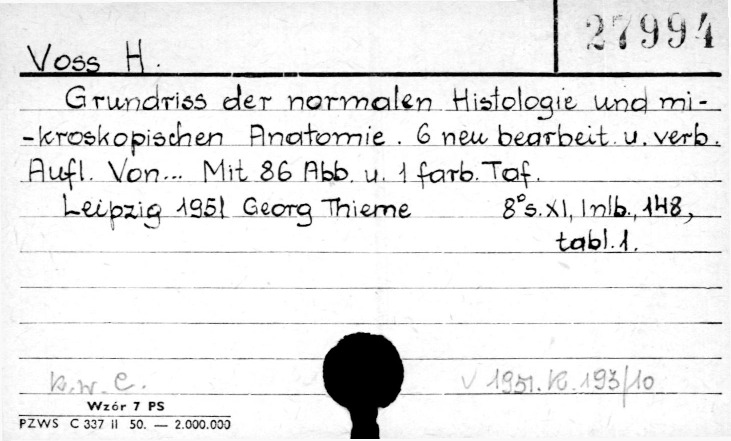 27994
Voss H.
Grundriss der normalen Histologie und mi-
-kroskopischen Anatomie. 6 neu bearbeit. u. verb.
Aufl. Von... Mit 86 Abb. u. 1 farb. Taf.
Leipzig 1951 Georg Thieme 8° s. XI, 1 nlb., 148,
tabl. 1.
k.w.e. V 1951. K. 193/10
Wzór 7 PS
PZWS C 337 II 50. — 2.000.000